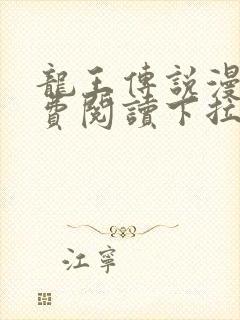 龍王傳說漫
費閱讀下拉
江寧